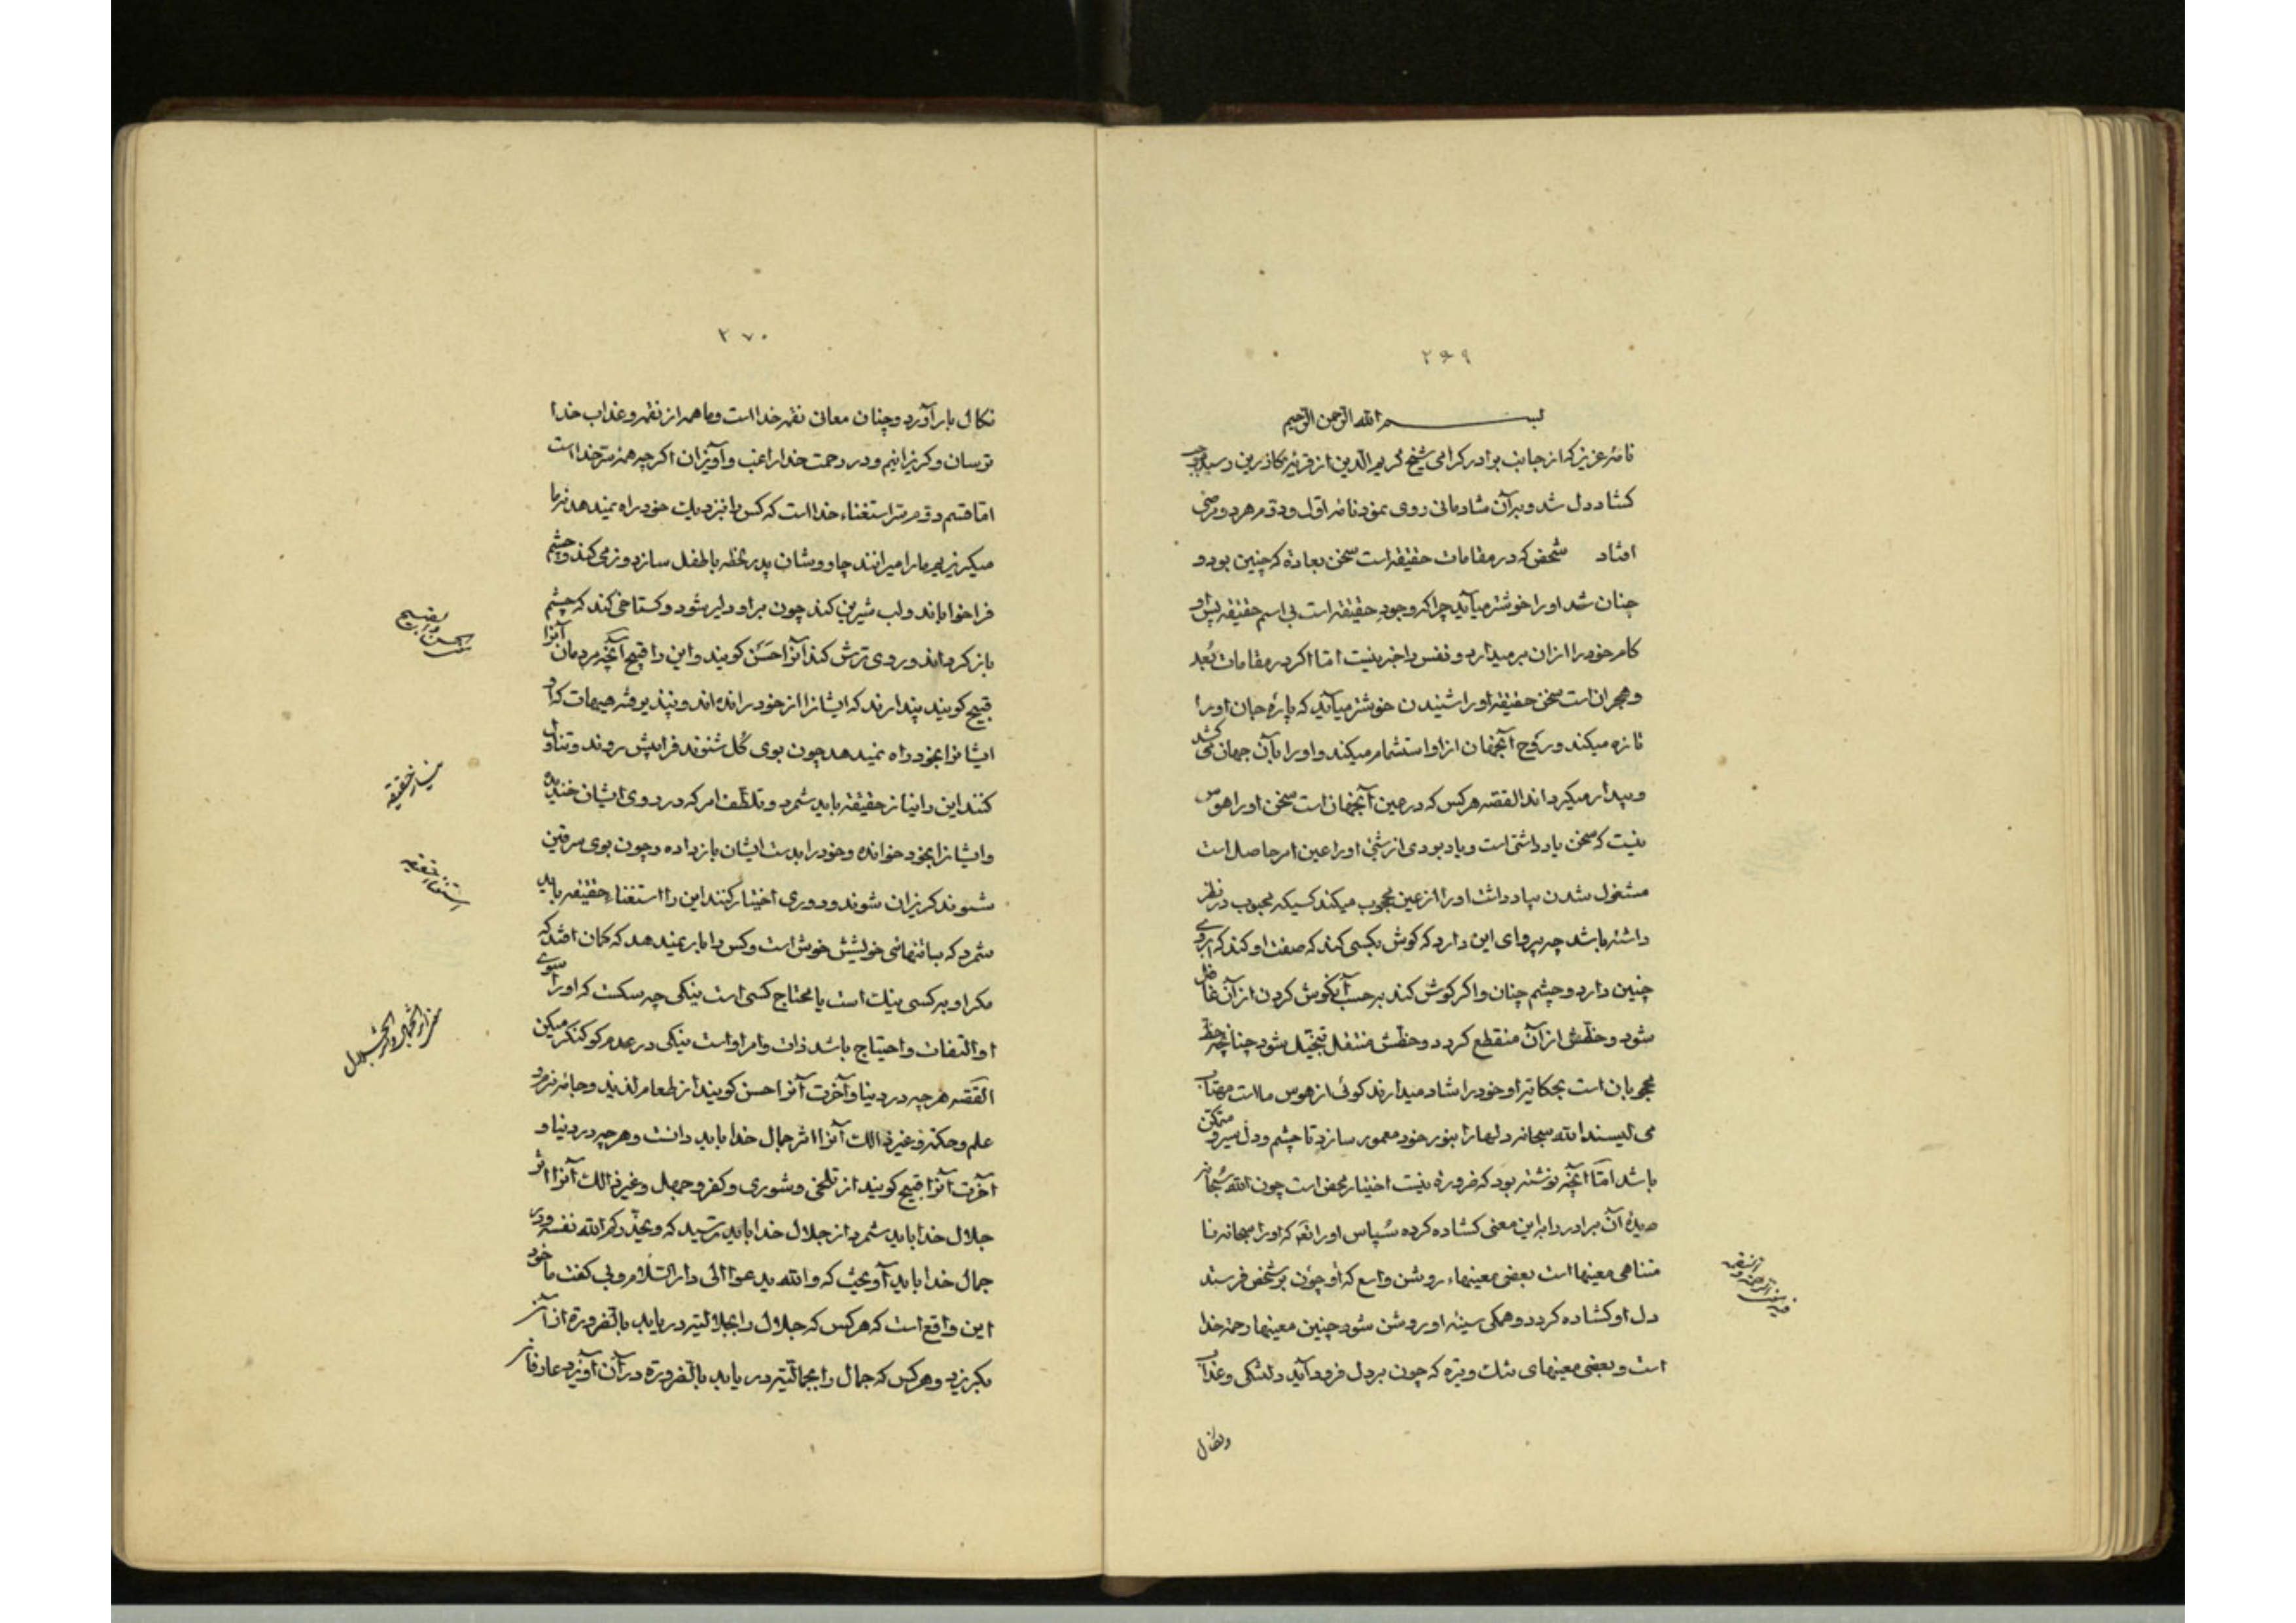 ۲۶۹
بسم الله الرحمن الرحیم
نامهٔ عزیز که از جانب برادر کرامی شیخ کریم الدین از قریهٔ کاذرین رسید موجب
کشاد دل شد و برآن شادمانی روی نمود نامه اول و دوم هر دو مرضی
افتاد شخصی که در مقامات حقیقة است سخن بعادة که چنین بود و
چنان شد او را خوشتر میآید چرا که وجود حقیقة است بی اسم حقیقة پیش او
کام خود را ازان برمیدارد و نفس را خبر نیست اما اکر در مقامات بُعد
و هجران است سخن حقیقة او را شنیدن خوشتر میآید که پارهٔ جان او را
تازه میکند و روح آنجهان ازاو استشمام میکند و او را بآن جهان می کشد
و بیدار میکرداند القصه هرکس که در عین آنجهان است سخن او را هوس
نیست که سخن یاد داشتی است و یاد بودی از شئ او را عین امر حاصل است
مشغول شدن بیاد داشت او را از عین محجوب میکند کسیکه محبوب در نظر
داشته باشد چه پروای این دارد که کوش بکسی کند که صفت او کند که ابروی
چنین دارد و چشم چنان و اکر کوش کند برحسب آنکوش کردن از آن غافل
شود و حظش از آن منقطع کردد و حظش منتقل بتخیل شود چنانچه حظ
محجوبان است بحکایت او خود را شاد میدارند کوئی از هوس ماست مهتاب
می لیسند الله سبحانه دلها را بنور خود معمور سازد تا چشم و دل سیر و متمکن
باشد امّا آنچه نوشته بود که ضرورة نیست اختیار محض است چون الله سُبحانه
دیدهٔ آن برادر را به این معنی کشاده کرده سُپاس او را نعَم که او را سبحانه نا
متناهی معینها است بعضی معینهاء روشن واسع که اُو چوُن بر شخص فرستد
دل او کشاده کردد و همکی سینه او روشن شود چنین معینها رحمة خدا
است و بعضی معینهای تنک و تیره که چون بر دل فرود آید دلتنکی و عذاب
و نکال
۲۷۰
نکال بار آورد و چنان معانی نقمه خدا است و ما همه از نقمه و عذاب خدا
ترسان و کریزانیم و در رحمت خدا راغب و آویزان اکرچه همه متر خدا است
اما قسم دوم متر استغناء خدا است که کس را نزدیک خود راه نمیدهد نه ما
میکریزیم ما را میرانند چاووشان پدر لحظه با طفل سازد و نرمی کند و چشم
فرا خواباند و لب شیرین کند چون بر او دلیر شود و کستاخی کند که چشم
باز کرداند و روی ترش کند آنرا حَسَن کویند و این را قبیح آنچه مردمان آنرا
قبیح کویند پندارند که ایشانرا از خود رانده اند و نپذیرفته هیهات که او
ایشانرا بخود راه نمیدهد چون بوی کُل شنوند فراپیش روند و تناول
کنند این را نیاز حقیقة باید شمرد و تلطّف امر که در روی ایشان خندیده
و ایشانرا بخود خوانده و خود را بدست ایشان باز داده و چون بوی سرقین
شنوند کریزان شوند و دوری اختیار کنند این را استغناء حقیقه باید
شمرد که بتنهائی خویشش خوش است و کس را بار نمیدهد که کمان افتد که
مکر او به کسی نیک است یا محتاج کسی است نیکی چه سکست که او را سوی
او التفات و احتیاج باشد ذات و امر او است نیکی در عدم کو کنکر میکن
القصّه هرچه در دنیا و آخرت آنرا احسن کویند از طعام لذیذ و جامه نرم و
علم و حکمة و غیر ذالک آنرا اثر جمال خدا باید دانست و هرچه در دنیا و
آخرت آنرا قبیح کویند از تلخی و شوری و کفر و جهل و غیر ذالک آنرا اثر
جلال خدا باید شمرد از جلال خدا باید ترسید که و یحذّرکم الله نفسه و در
جمال خدا باید آویخت که والله یدعوا الی دار السّلام و بی کفت ما خود
این واقع است که هرکس که جلال را بجلالیته دریابد بالضرورة از آن
بکریزد و هرکس که جمال را بجمالیّته دریابد بالضرورة در آن آویزد عارفان
نیاز حقیقه
استغناء حقیقه